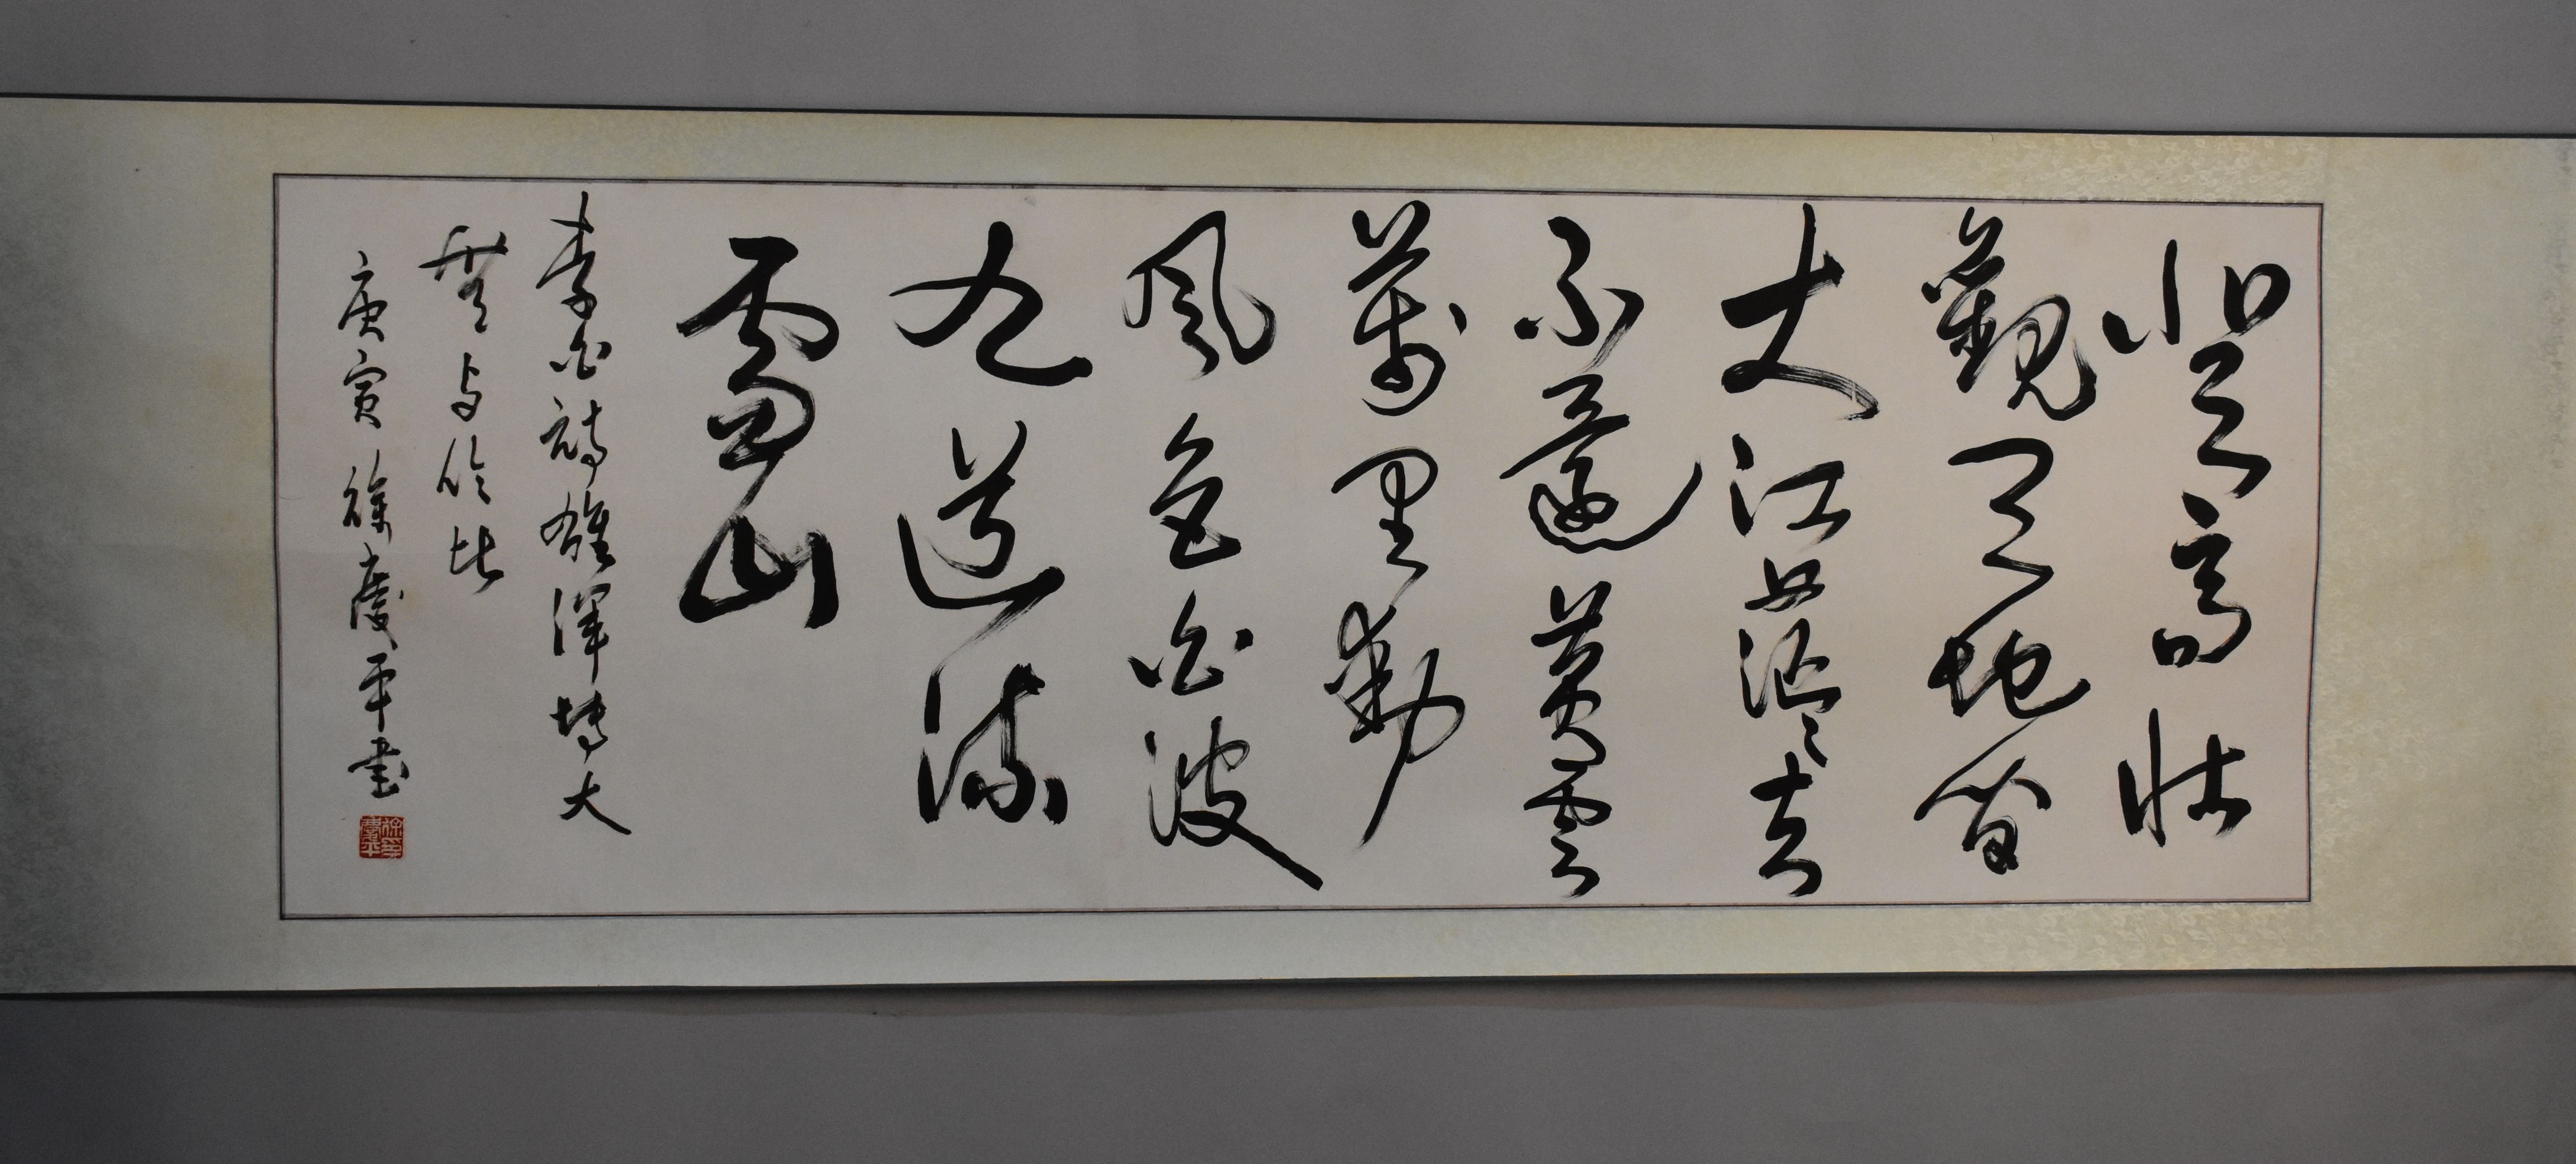 登高壯
觀天地間
大江茫々去
不還黃雲
萬里動
風色白波
九道流
雪山
李白詩雄渾博大
無与倫比
庚寅徐慶平書
徐印慶平